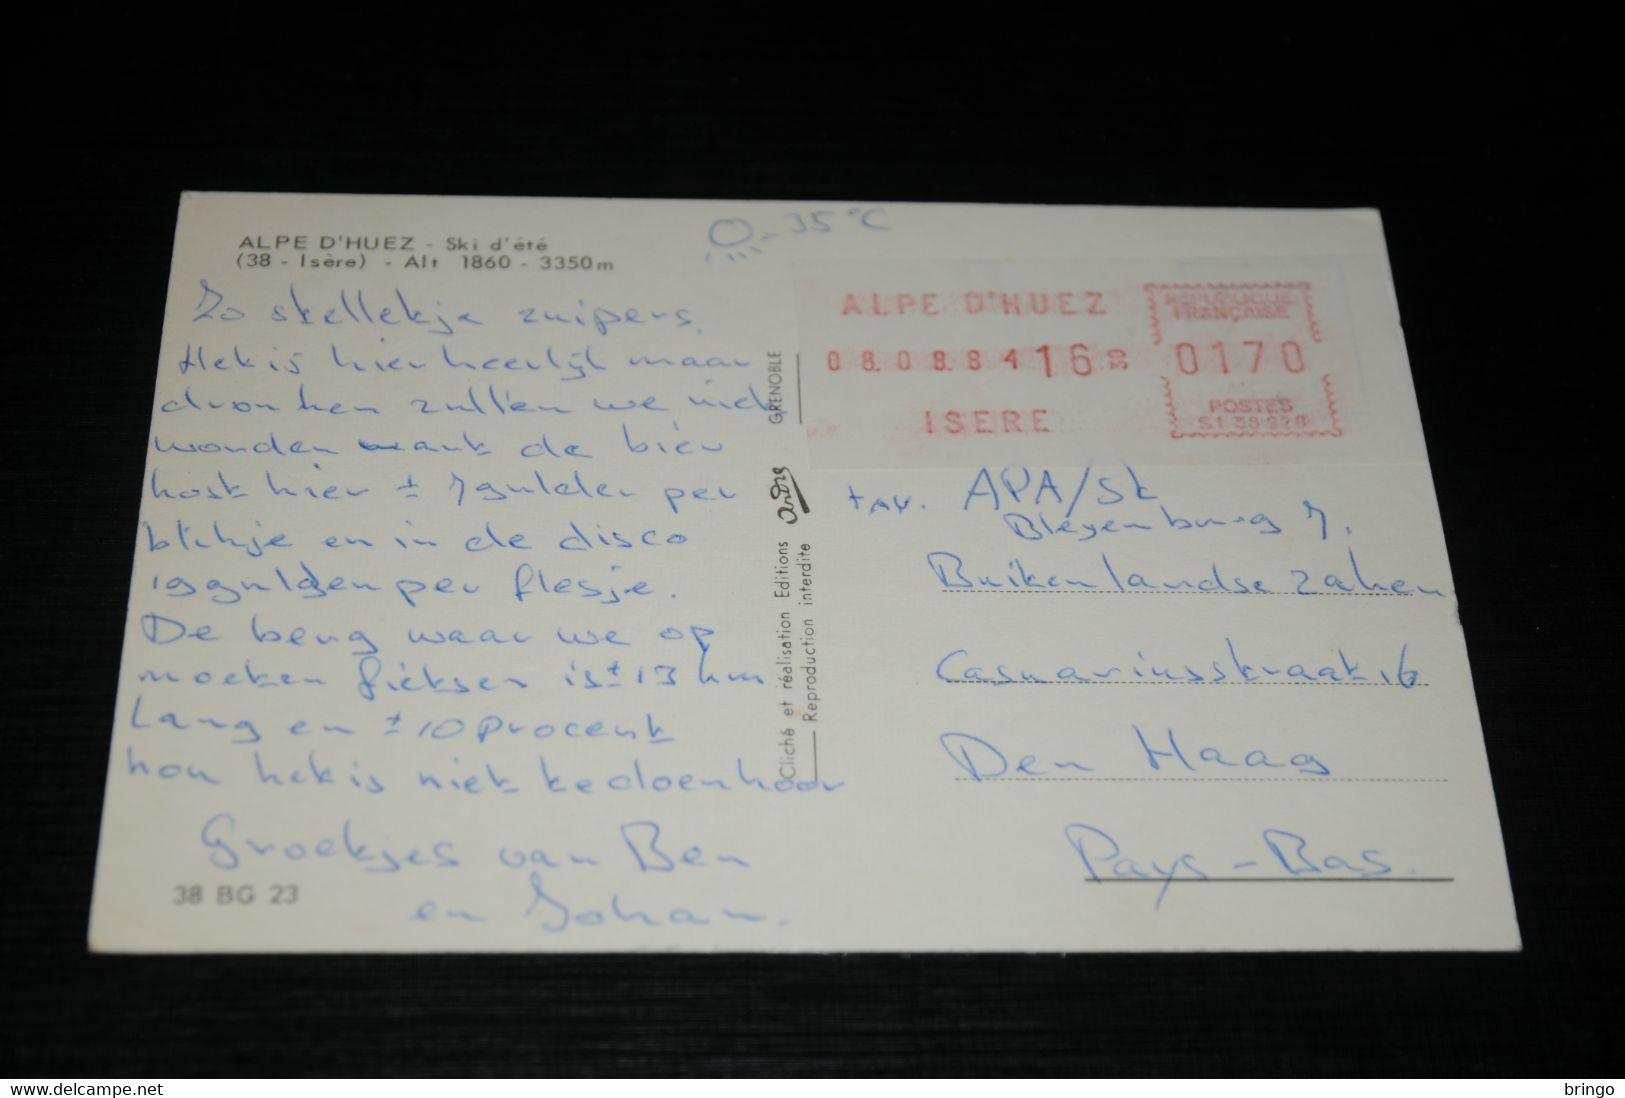 ALPE D'HUEZ - Ski d'été
(38 - Isère) - Alt 1860 - 3350 m
35°C
Zo stelletje zuipers,
Het is hier heerlijk maar
dronken zullen we niet
worden want de bier
kost hier ± 7 gulden per
blikje en in de disco
19 gulden per flesje.
De berg waar we op
moeten fietsen is ± 13 km
lang en ± 10 procent
hou het is niet te doen hoor
Groetjes van Ben
en Johan.
38 BG 23
Cliché et réalisation Editions André GRENOBLE
Reproduction interdite
ALPE D'HUEZ
08.08.84 16
ISERE
REPUBLIQUE
FRANÇAISE
0170
POSTES
t.a.v. APA/St
Bleyenburg 7.
Buitenlandse zaken
Casuariusstraat 16
Den Haag
Pays-Bas.
delcampe.net
bringo